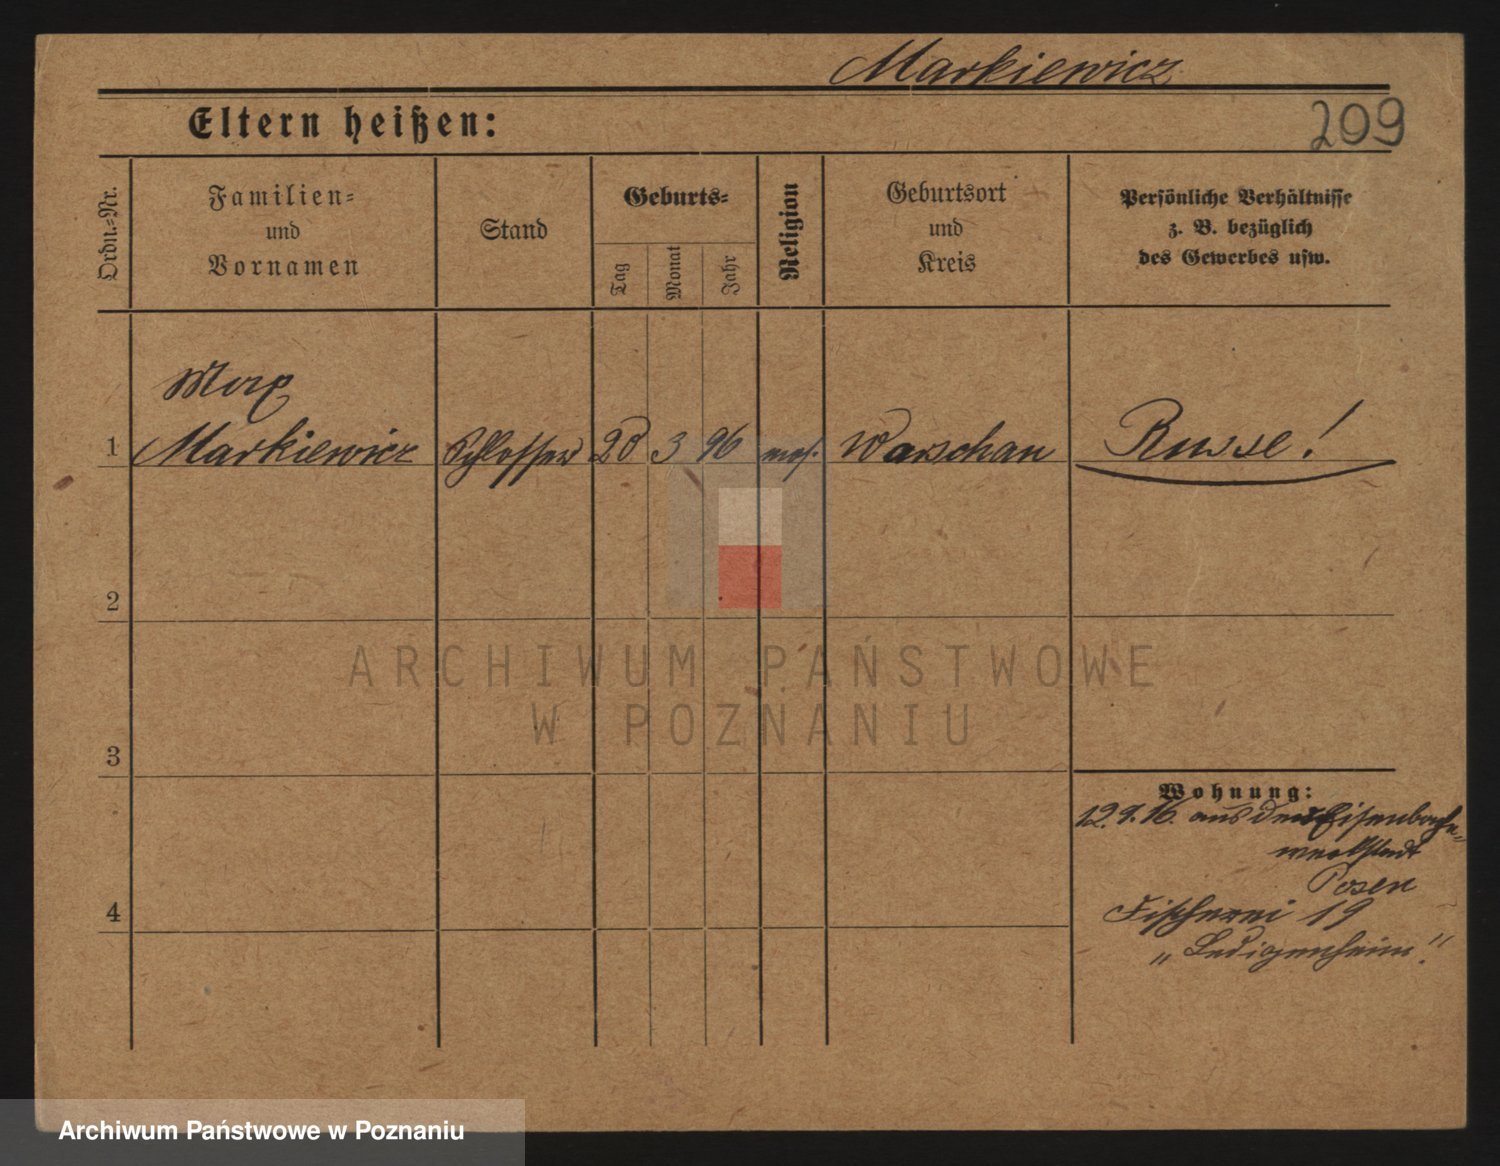 Markiewicz
209
Eltern heißen:
Ordn.-Nr.
Familien-
und
Vornamen
Stand
Geburts-
Tag
Monat
Jahr
Religion
Geburtsort
und
Kreis
Persönliche Verhältnisse
z. B. bezüglich
des Gewerbes usw.
Max
1 Markiewicz Schlosser 20 3 96 mos. Warschau Russe!
2
ARCHIWUM PAŃSTWOWE
W POZNANIU
3
Wohnung:
12.9.16. aus der Eisenbahn-
werkstadt
Posen
4
Fischerei 19
„Ledigenheim."
Archiwum Państwowe w Poznaniu